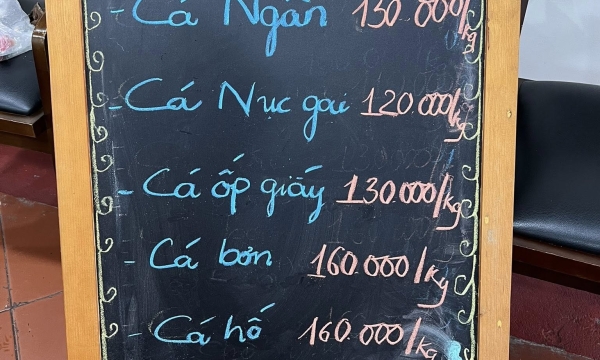 - Cá Ngân 130 000/kg
- Cá Nục gai 120 000/kg
- Cá ốp giấy 130.000/kg
- Cá bơn 160.000/kg
- Cá hố 160.000/kg